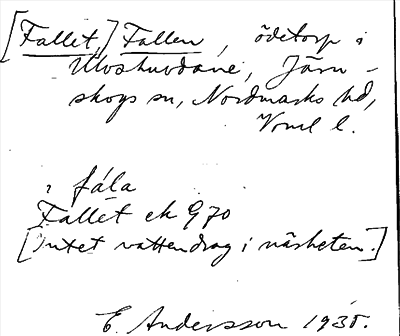 [Fallet,] Fallen, ödetorp i
Ulvshuvdane, Järn-
skogs sn, Nordmarks hd,
Vrml l.
i fála
Fallet ek 970
[Intet vattendrag i närheten.]
E. Andersson 1935.